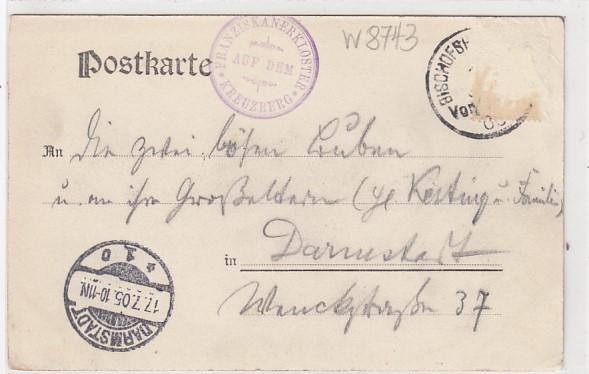 W 8743
Postkarte
FRANZISKANERKLOSTER
AUF DEM
KREUZBERG
BISCHOFSH
Von
An die zwei bösen Buben
u. an ihre Großeltern ( Kesting u. Familie)
in Darmstadt
Wenckstraße 37
DARMSTADT
17.7.05.10-11N.